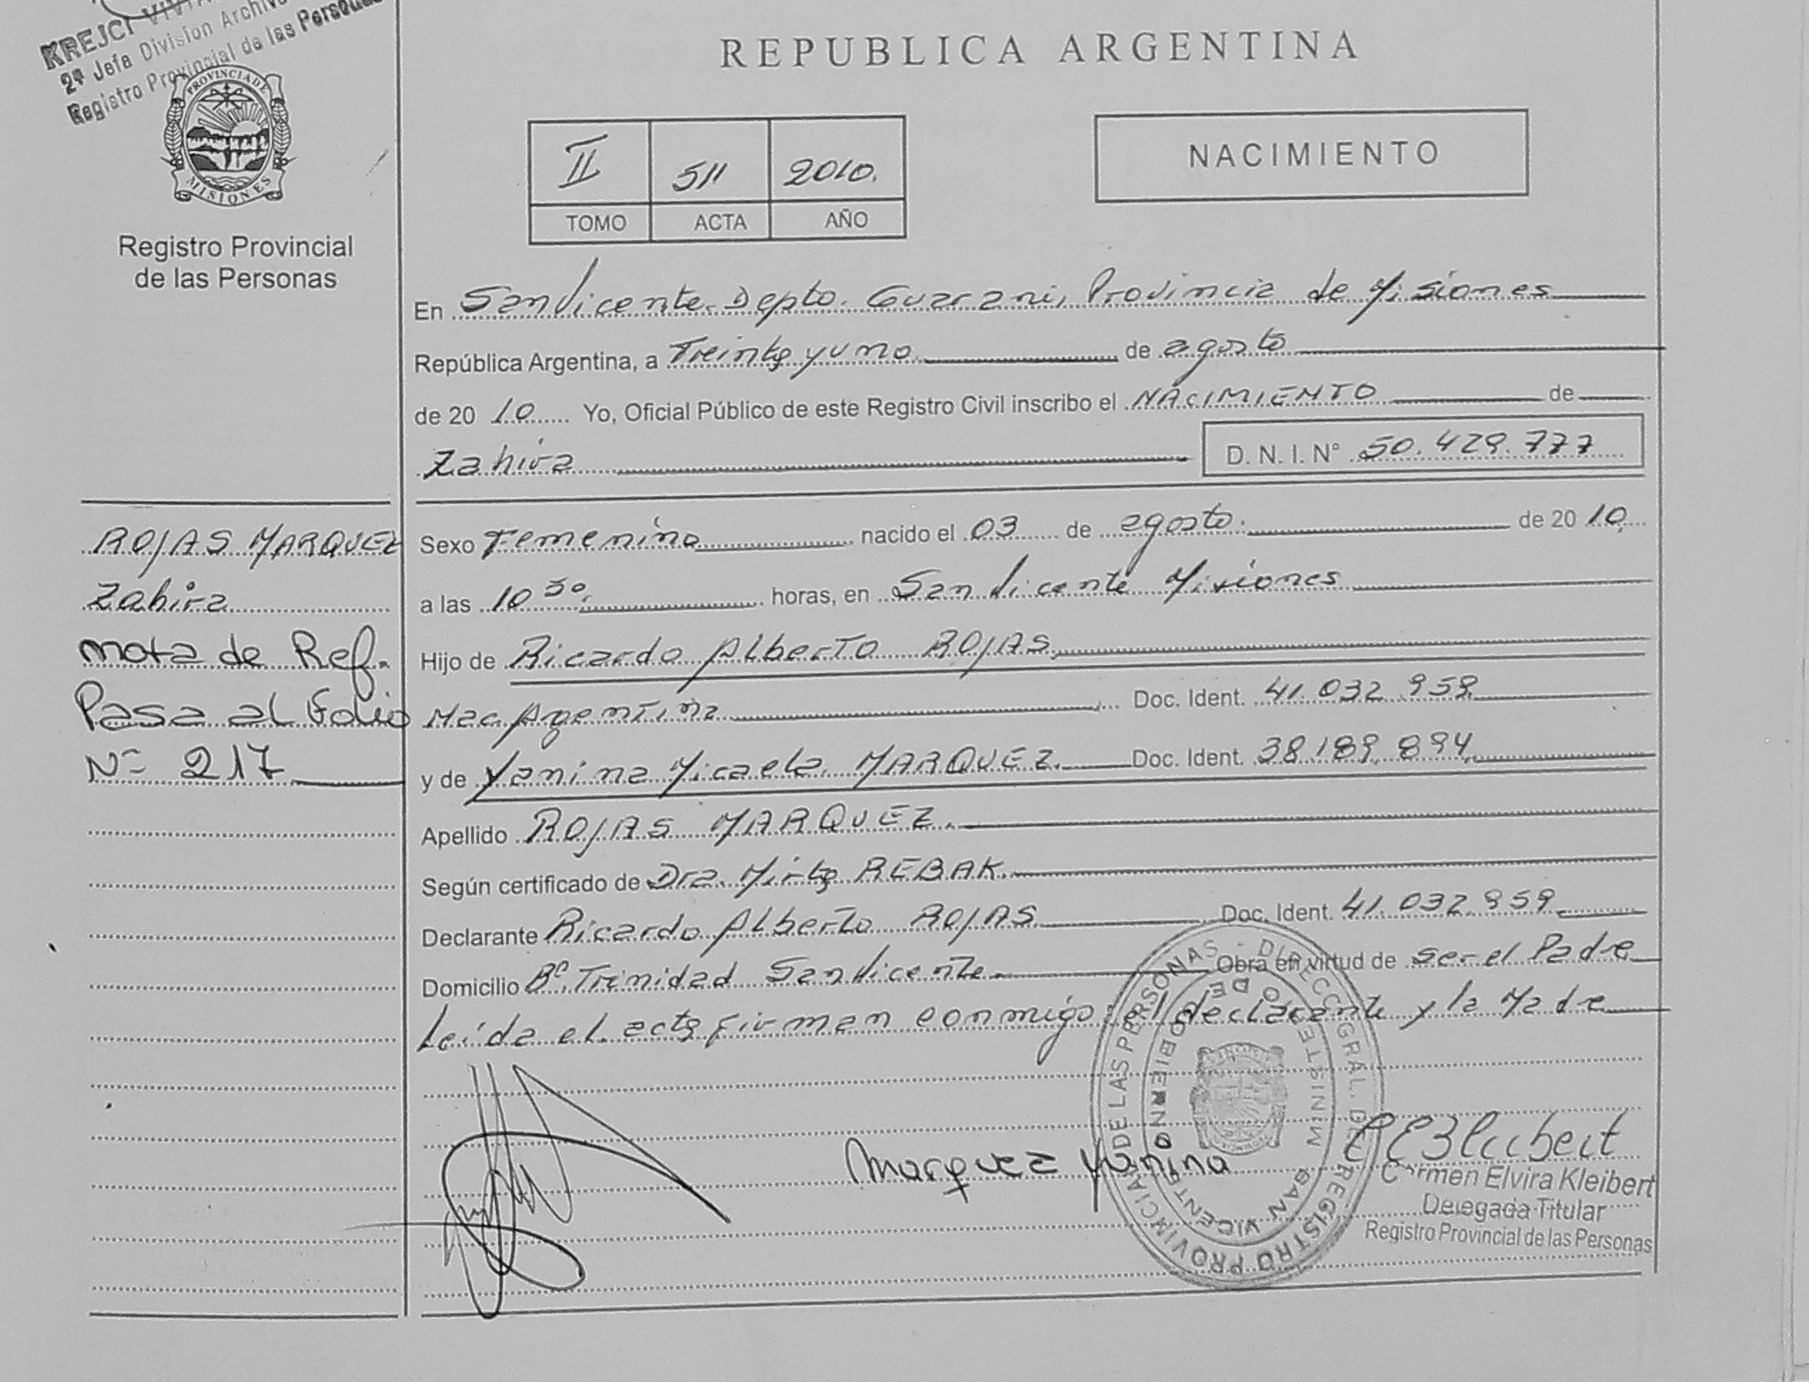 KREJCI
2ª Jefa Division Archivo
Registro Provincial de las Personas
PROVINCIA DE
MISIONES
Registro Provincial
de las Personas
REPUBLICA ARGENTINA
II 511 2010.
TOMO ACTA AÑO
NACIMIENTO
En San Vicente. Depto. Guarani, Provincia de Misiones
República Argentina, a Treinta y uno de agosto
de 2010 Yo, Oficial Público de este Registro Civil inscribo el NACIMIENTO de
Zahira D. N. I. N° 50.429.777
ROJAS MARQUEZ
Zahira
nota de Ref.
Pasa al Folio
Nº 217
Sexo Femenino nacido el 03 de agosto. de 2010.
a las 10 30. horas, en San Vicente Misiones
Hijo de Ricardo Alberto ROJAS
Nac. Argentina Doc. Ident. 41.032.959
y de Yanina Micaela MARQUEZ. Doc. Ident. 38.189.894
Apellido ROJAS MARQUEZ.
Según certificado de Dra. Mirta REBAK.
Declarante Ricardo Alberto ROJAS Doc. Ident. 41.032.959
Domicilio Bº. Trinidad San Vicente. Obra en virtud de ser el Padre
Leida el acta firman conmigo: el declarante y la Madre
Marquez Yanina
DIRECC. GRAL. DEL REGISTRO PROVINCIAL DE LAS PERSONAS
MINISTERIO DE GOBIERNO
SAN VICENTE
Carmen Elvira Kleibert
Delegada Titular
Registro Provincial de las Personas